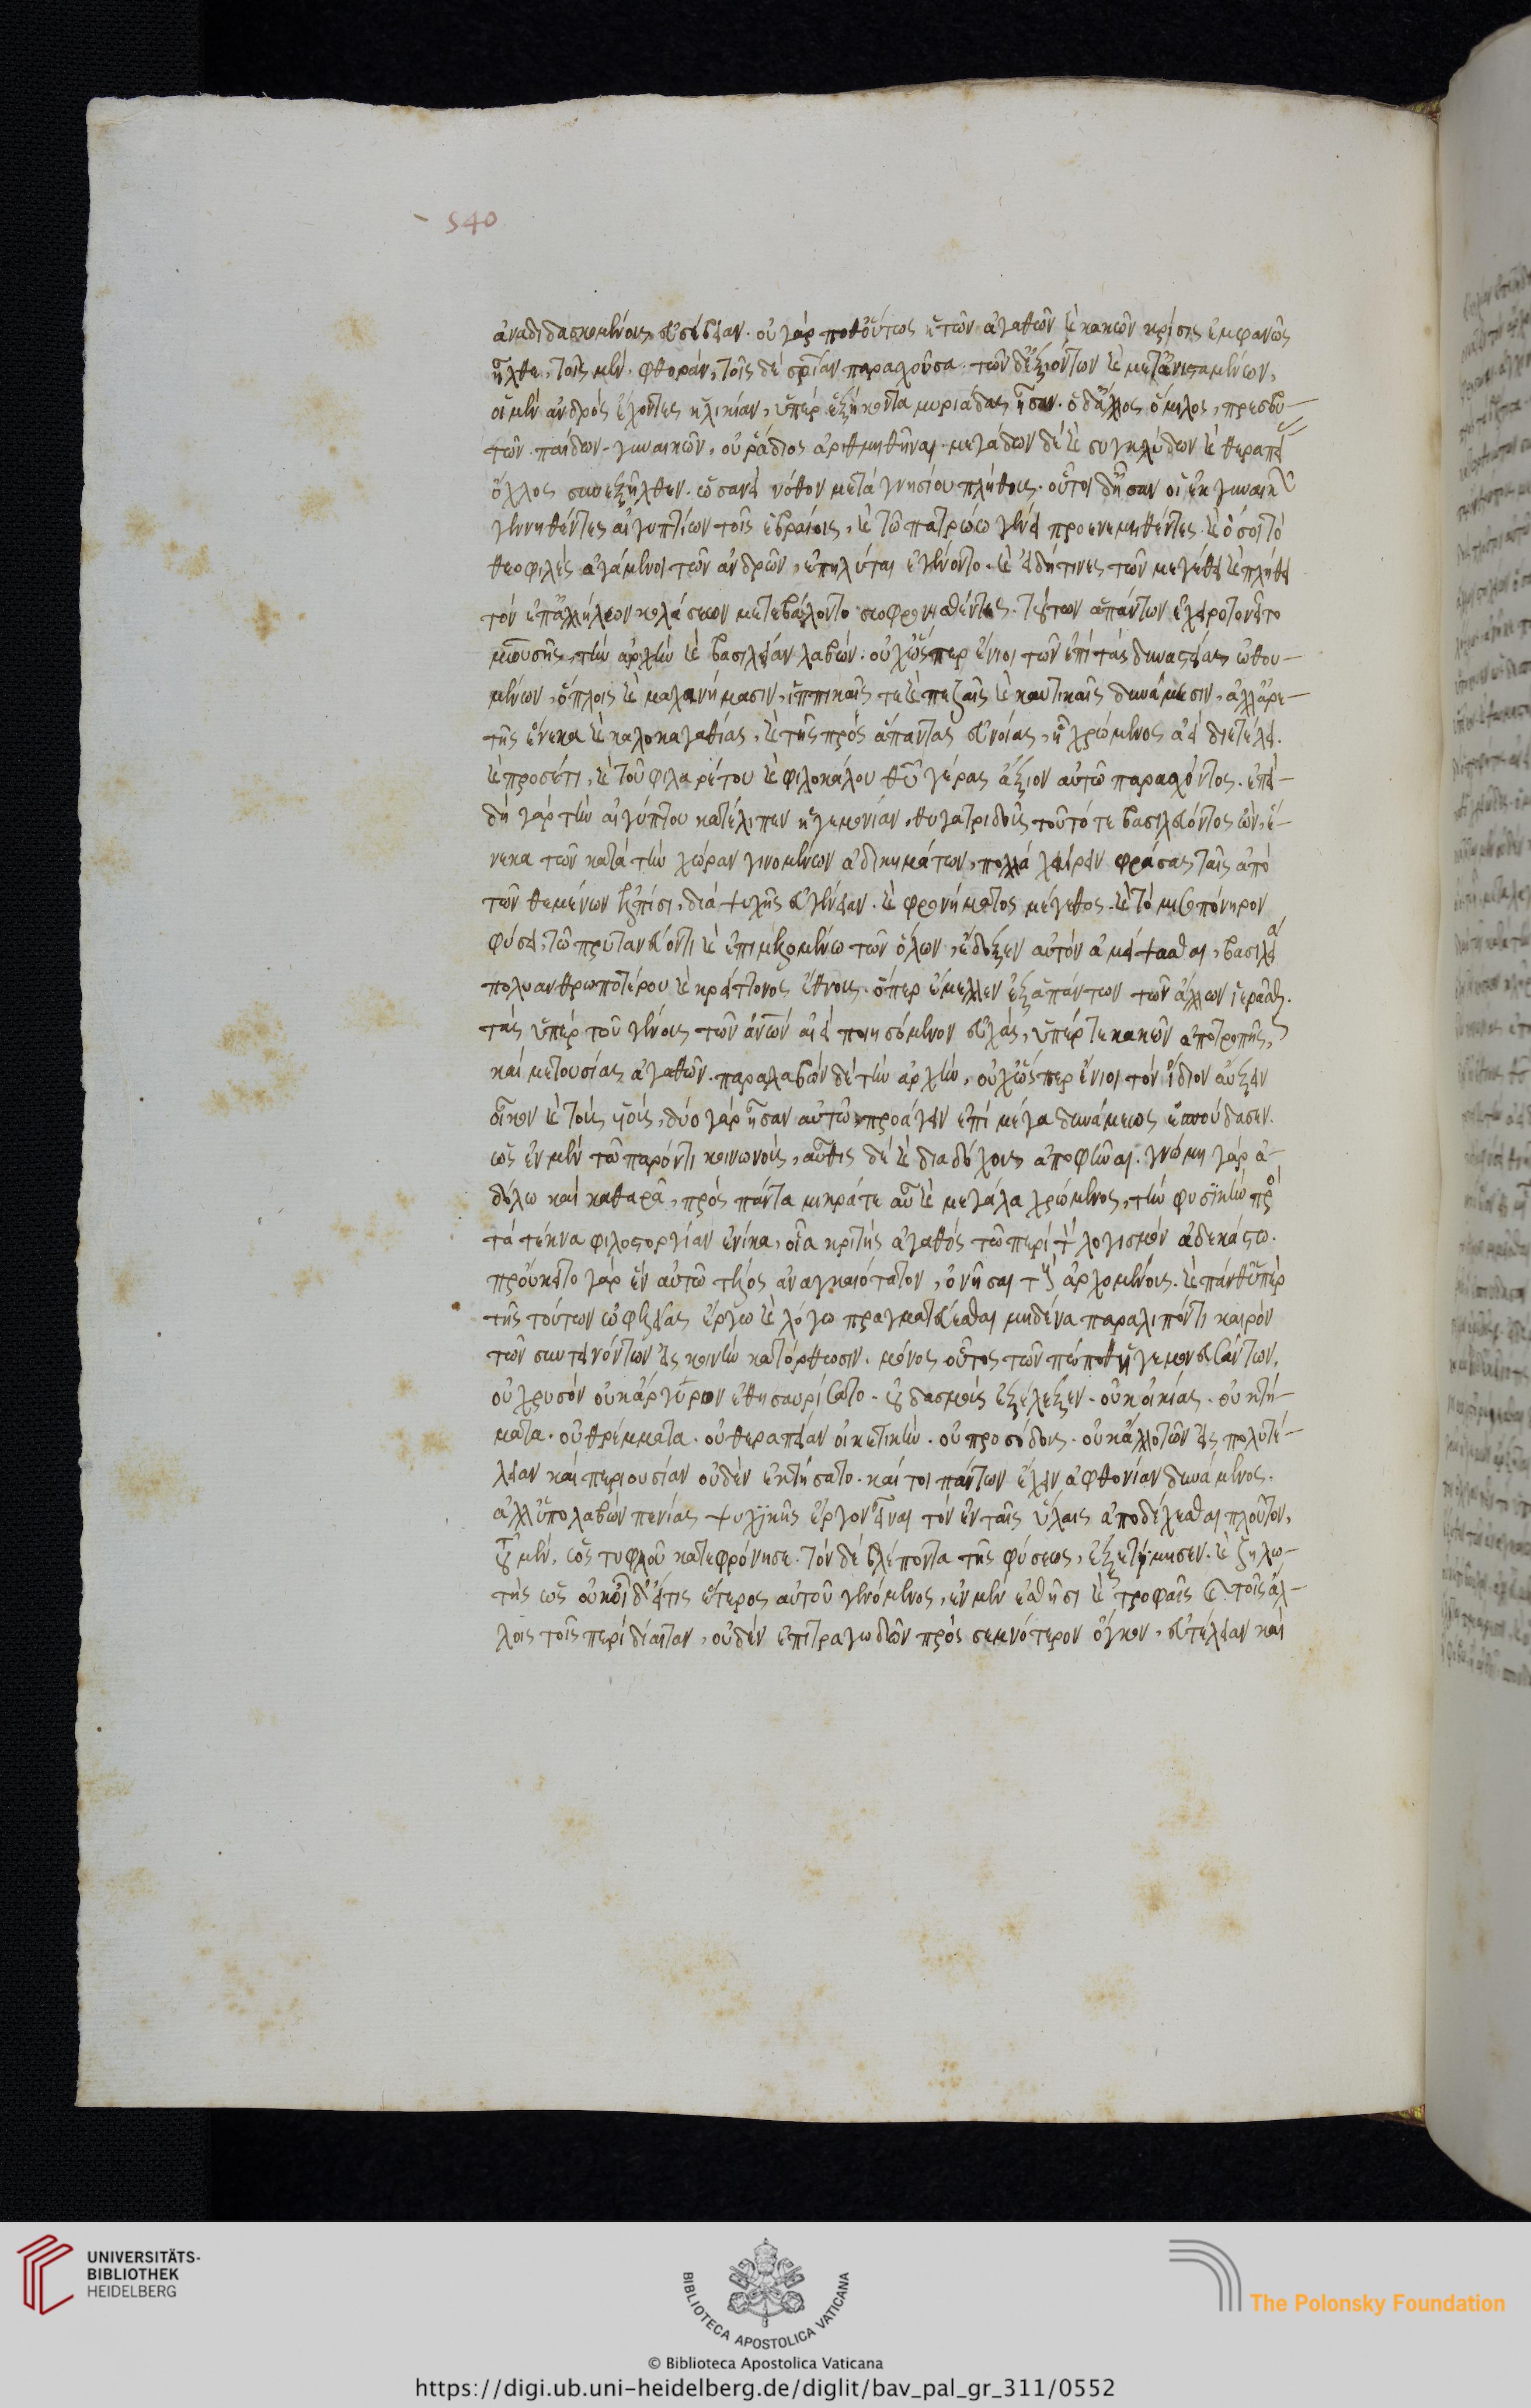 540
ἀναδιδασκομένοις εὐσέβειαν. οὐ γάρ ποθ' οὕτως ἡ τῶν ἀγαθῶν καὶ κακῶν κρίσις ἐμφανῶς
ἦλθε, τοῖς μὲν φθοράν, τοῖς δὲ σρίαν παρασχοῦσα. τῶν δ' ἐξιόντων καὶ μετανισταμένων,
οἱ μὲν ἀνδρὸς ἔχοντες ἡλικίαν, ὑπὲρ ἑξήκοντα μυριάδας ἦσαν. ὁ δ' ἄλλος ὅμιλος, πρεσβυ-
τῶν. παίδων. γυναικῶν, οὐ ῥάδιος ἀριθμηθῆναι. μιγάδων δὲ καὶ συγκλύδων καὶ θεραπεί
ὄχλος συνεξῆλθεν. ὡσανεὶ νόθον μετὰ γνησίου πλήθους. οὗτοι δ' ἦσαν οἱ ἐκ γυναικῶν
γεννηθέντες αἰγυπτίων τοῖς ἑβραίοις, καὶ τῷ πατρῴῳ γένει προσνεμηθέντες. καὶ ὅσοι τὸ
θεοφιλὲς ἀγάμενοι τῶν ἀνδρῶν, ἐπηλύται ἐγένοντο. καὶ εἰ δή τινες τῶν μεγέθει καὶ πλήθει
τὸν ἐπαλλήλων κολάσεων μετεβάλοντο σωφρονισθέντες. τούτων ἁπάντων ἐχειροτονεῖτο
μωυσῆς, τὴν ἀρχὴν καὶ βασιλείαν λαβών. οὐχ ὥσπερ ἔνιοι τῶν ἐπὶ τὰς δυναστείας ὠθου-
μένων, ὅπλοις καὶ μηχανήμασιν, ἱππικαῖς τε καὶ πεζαῖς καὶ ναυτικαῖς δυνάμεσιν, ἀλλ' ἀρε-
τῆς ἕνεκα καὶ καλοκαγαθίας, καὶ τῆς πρὸς ἅπαντας εὐνοίας, ᾗ χρώμενος ἀεὶ διετέλει.
καὶ προσέτι, καὶ τοῦ φιλαρέτου καὶ φιλοκάλου θυ γέρας ἄξιον αὐτῷ παρασχόντος. ἐπει-
δὴ γὰρ τὴν αἰγύπτου κατέλιπεν ἡγεμονίαν, θυγατριδοῦς τοῦ τότε βασιλεύοντος ὤν, ἕ-
νεκα τῶν κατὰ τὴν χώραν γινομένων ἀδικημάτων, πολλὰ χαίρειν φράσας ταῖς ἀπὸ
τῶν θεμένων ἐλπίσι, διὰ ψυχῆς εὐγένειαν. καὶ φρονήματος μέγεθος. καὶ τὸ μισοπόνηρον
φύσει, τῷ πρυτανεύοντι καὶ ἐπιμελομένῳ τῶν ὅλων, ἔδοξεν αὐτὸν ἀμείψασθαι, βασιλείᾳ
πολυανθρωποτέρου καὶ κρείττονος ἔθνους. ὅπερ ἔμελλεν ἐξ ἁπάντων τῶν ἄλλων ἱερᾶσθαι.
τὰς ὑπὲρ τοῦ γένους τῶν ἀνων αἰεὶ ποιησόμενον εὐχάς, ὑπέρ τε κακῶν ἀποτροπῆς,
καὶ μετουσίας ἀγαθῶν. παραλαβὼν δὲ τὴν ἀρχήν, οὐχ ὥσπερ ἔνιοι τὸν ἴδιον αὔξειν
οἶκον καὶ τοὺς υἱούς, δύο γὰρ ἦσαν αὐτῷ, προάγειν ἐπὶ μέγα δυνάμεως ἐσπούδασεν.
ὡς ἐν μὲν τῷ παρόντι κοινωνούς, αὖθις δὲ καὶ διαδόχους ἀποφῆναι. γνώμη γὰρ ἀ-
δόλῳ καὶ καθαρᾷ, πρὸς πάντα μικρά τε αὖ καὶ μεγάλα χρώμενος, τὴν φυσικὴν πρὸς
τὰ τέκνα φιλοστοργίαν ἐνίκα, οἷα κριτὴς ἀγαθὸς τῷ περὶ τὸν λογισμὸν ἀδεκάστῳ.
προὔκειτο γὰρ ἓν αὐτῷ τέλος ἀναγκαιότατον, ὀνῆσαι τοὺς ἀρχομένους. καὶ πάνθ' ὑπὲρ
τῆς τούτων ὠφελείας ἔργῳ καὶ λόγῳ πραγματεύεσθαι μηδένα παραλιπόντι καιρὸν
τῶν συντεινόντων εἰς κοινὴν κατόρθωσιν. μόνος οὗτος τῶν πώποθ' ἡγεμονευσάντων,
οὐ χρυσὸν οὐκ ἄργυρον ἐθησαυρίσατο. οὐ δασμοὺς ἐξέλεξεν. οὐκ οἰκίας. οὐ κτή-
ματα. οὐ θρέμματα. οὐ θεραπείαν οἰκετικήν. οὐ προσόδους. οὐκ ἄλλο τῶν εἰς πολυτέ-
λειαν καὶ περιουσίαν οὐδὲν ἐκτήσατο. καί τοι πάντων ἔχειν ἀφθονίαν δυνάμενος.
ἀλλ' ὑπολαβὼν πενίας ψυχικῆς ἔργον εἶναι τὸν ἐν ταῖς ὕλαις ἀποδέχεσθαι πλοῦτον,
τοῦ μὲν, ὡς τυφλοῦ κατεφρόνησε. τὸν δὲ βλέποντα τῆς φύσεως, ἐξετίμησεν. καὶ ζηλω-
τὴς ὡς οὐκ οἶδ' εἴ τις ἕτερος αὐτοῦ γενόμενος, ἐν μὲν ἐσθῆσι καὶ τροφαῖς καὶ τοῖς ἄλ-
λοις τοῖς περὶ δίαιταν, οὐδὲν ἐπιτραγῳδῶν πρὸς σεμνότερον ὄγκον, εὐτέλειαν καὶ
UNIVERSITÄTS-
BIBLIOTHEK
HEIDELBERG
BIBLIOTECA APOSTOLICA VATICANA
The Polonsky Foundation
© Biblioteca Apostolica Vaticana
https://digi.ub.uni-heidelberg.de/diglit/bav_pal_gr_311/0552